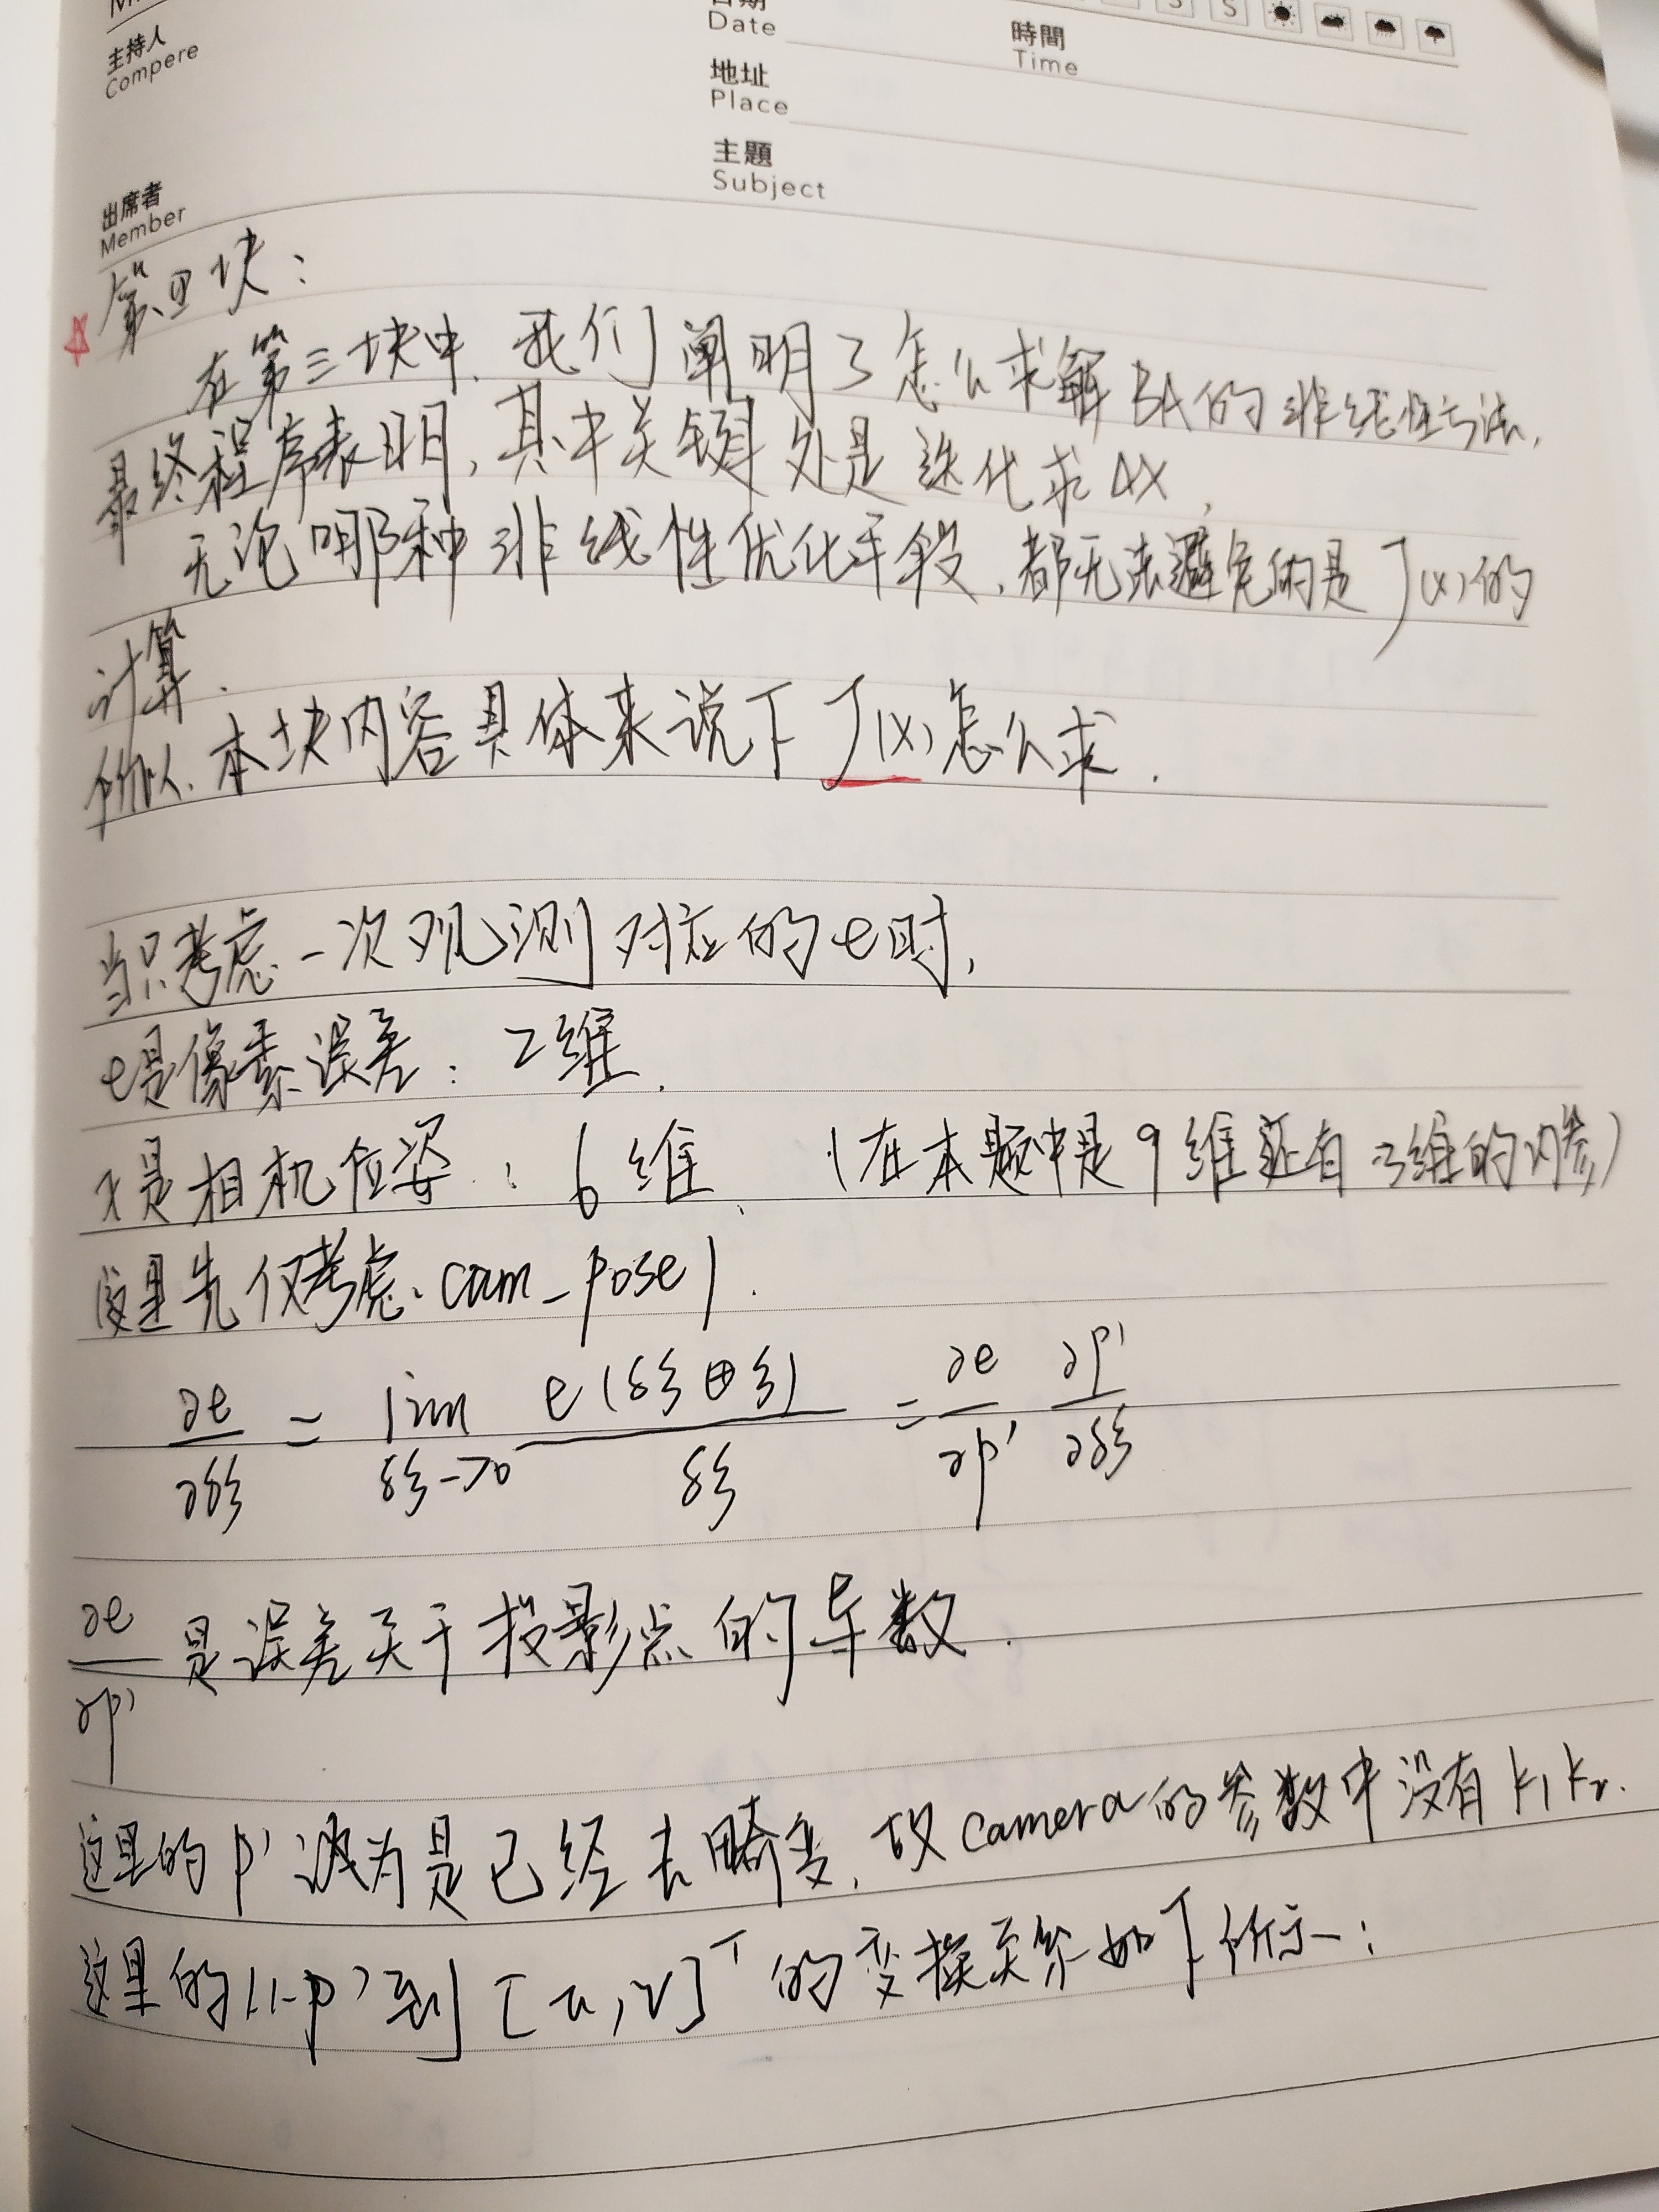 主持人
Compere
日期
Date
地址
Place
時間
Time
出席者
Member
主題
Subject
第四块:
在第三块中, 我们阐明了怎么求解BA的非线性方法,
最终程序表明, 其中关键处是迭代求ΔX,
无论哪种非线性优化手段, 都无法避免的是J(x)的
计算.
所以, 本块内容具体来说于J(x)怎么求.
当只考虑一次观测对应的e时,
e是像素误差: 2维.
x是相机位姿: 6维. (在本题中是9维还有3维的内参)
这里先仅考虑Cam-pose.
∂e/∂δξ = lim δξ→0 e(δξ⊕ξ)/δξ = ∂e/∂p' ∂p'/∂δξ
∂e/∂p' 是误差关于投影点的导数.
这里的p'认为是已经去畸变, 设camera的参数中没有k1 k2.
这里的1-p'到[u,v]ᵀ的变换关系如下所示: